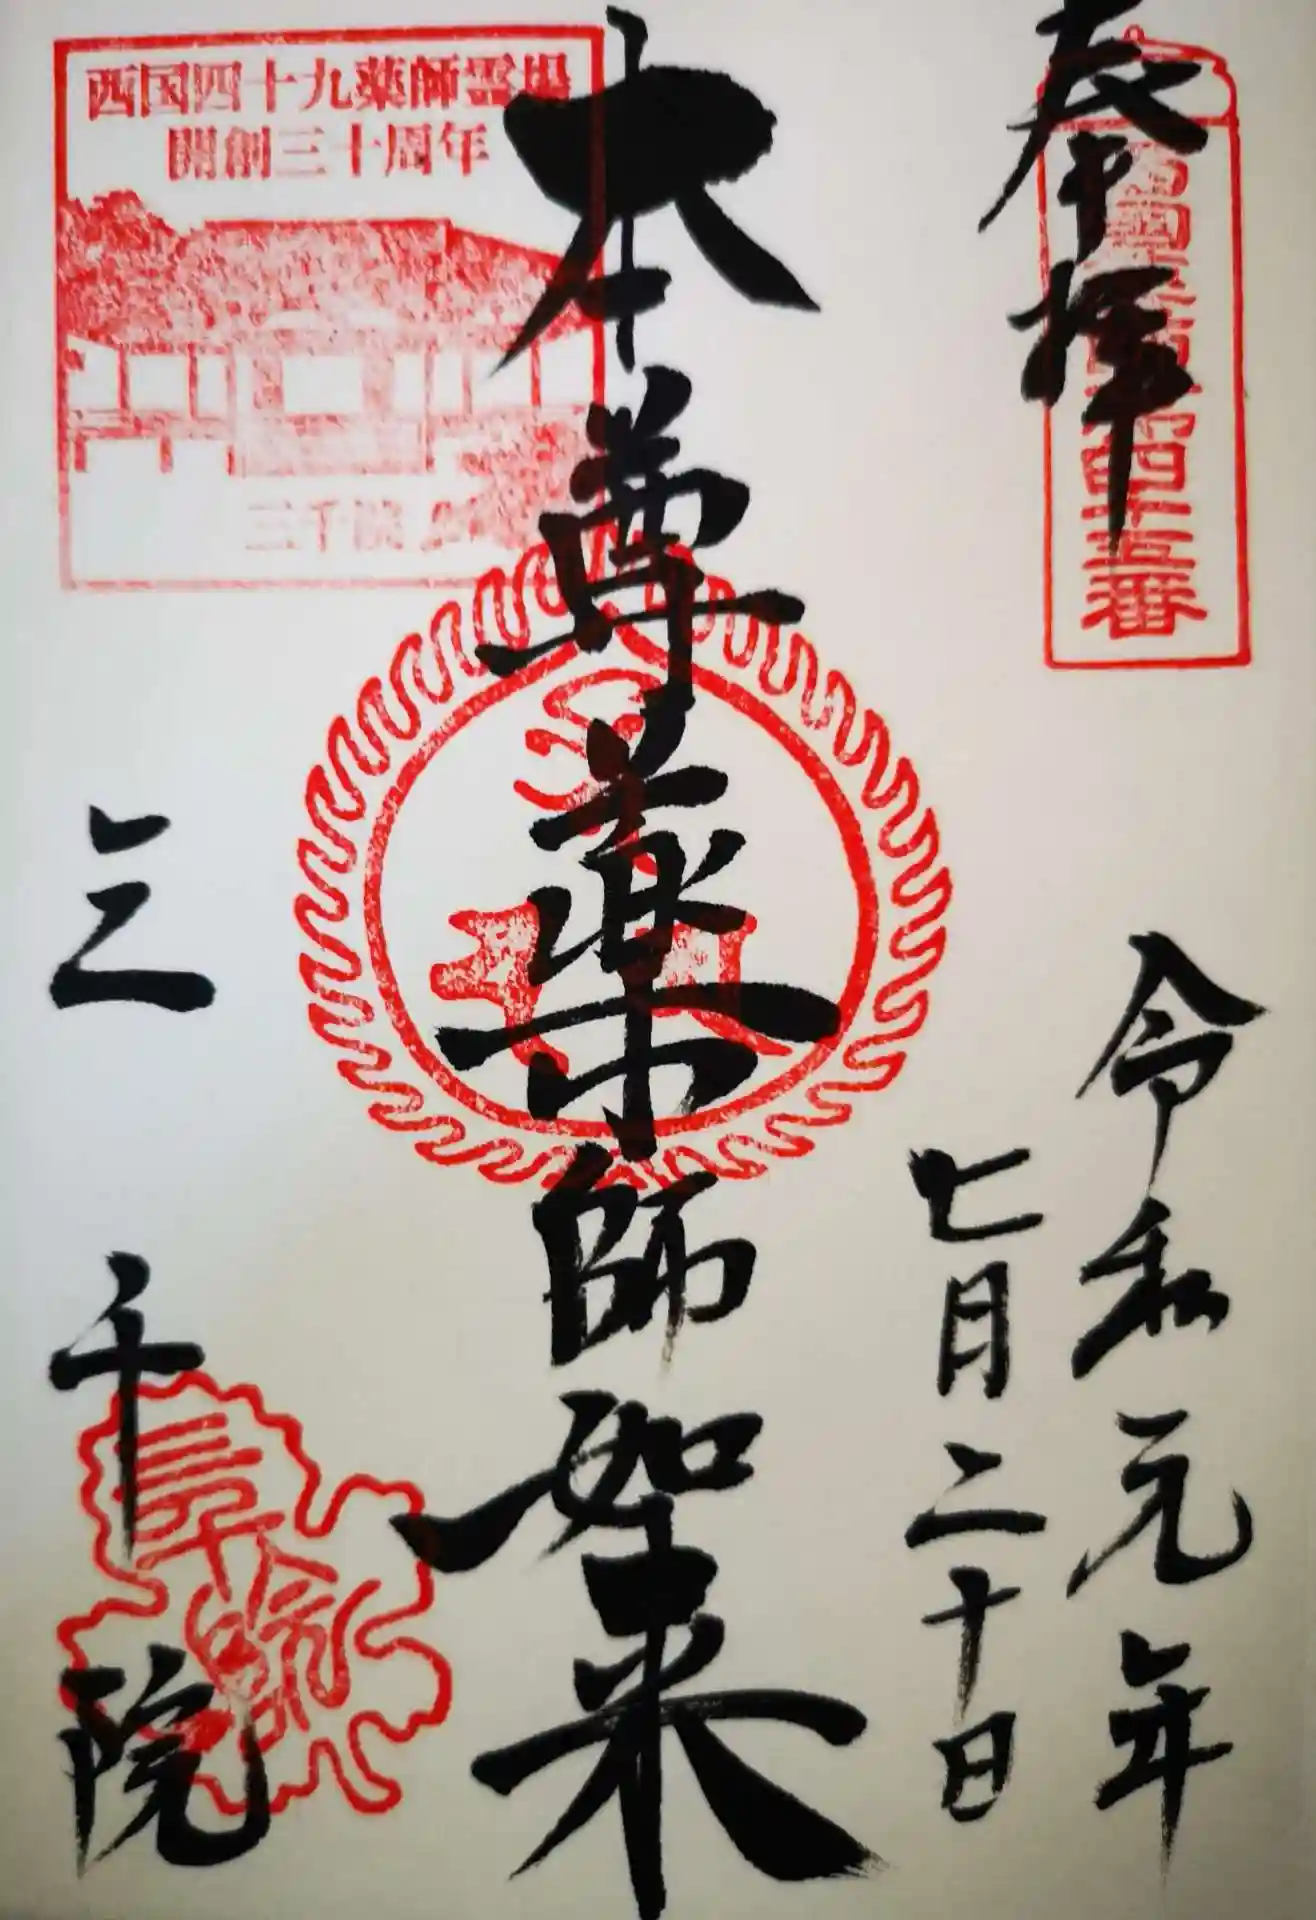 奉拝
西国薬師第四十五番
令和元年
七月二十日
本尊薬師如来
西国四十九薬師霊場
開創三十周年
三千院
三千院